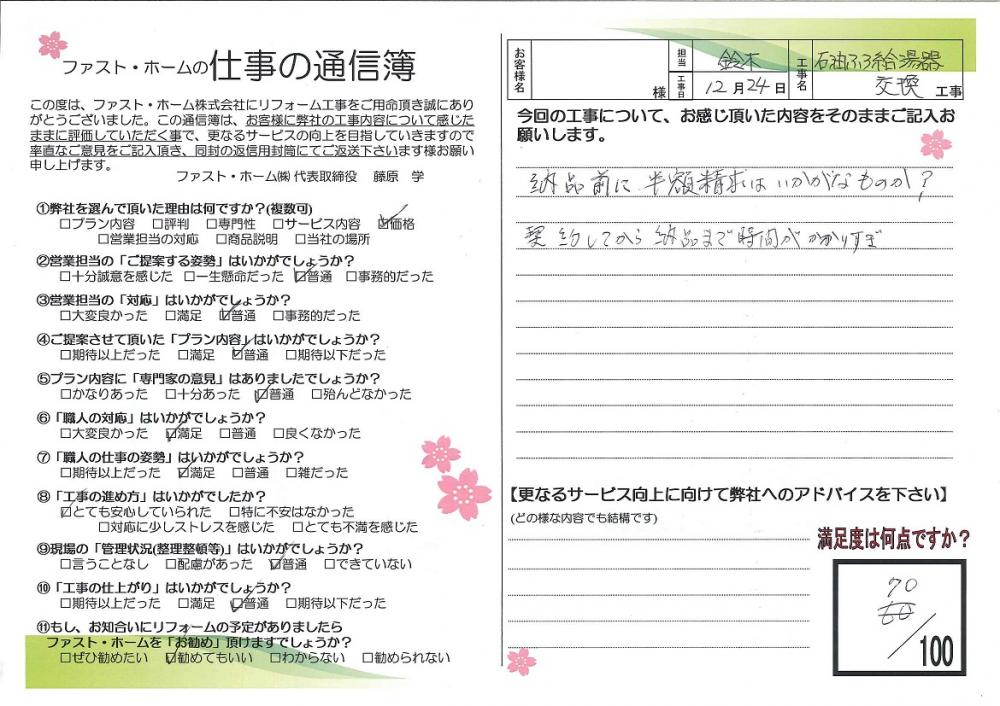 ファスト・ホームの仕事の通信簿
この度は、ファスト・ホーム株式会社にリフォーム工事をご用命頂き誠にあり
がとうございました。この通信簿は、お客様に弊社の工事内容について感じた
ままに評価していただく事で、更なるサービスの向上を目指していきますので
率直なご意見をご記入頂き、同封の返信用封筒にてご返送下さいます様お願い
申し上げます。
ファスト・ホーム㈱ 代表取締役 藤原 学
①弊社を選んで頂いた理由は何ですか?(複数可)
□プラン内容 □評判 □専門性 □サービス内容 ☑価格
□営業担当の対応 □商品説明 □当社の場所
②営業担当の「ご提案する姿勢」はいかがでしょうか?
□十分誠意を感じた □一生懸命だった ☑普通 □事務的だった
③営業担当の「対応」はいかがでしょうか?
□大変良かった □満足 ☑普通 □事務的だった
④ご提案させて頂いた「プラン内容」はいかがでしょうか?
□期待以上だった □満足 ☑普通 □期待以下だった
⑤プラン内容に「専門家の意見」はありましたでしょうか?
□かなりあった □十分あった ☑普通 □殆んどなかった
⑥「職人の対応」はいかがでしょうか?
□大変良かった ☑満足 □普通 □良くなかった
⑦「職人の仕事の姿勢」はいかがでしょうか?
□期待以上だった ☑満足 □普通 □雑だった
⑧「工事の進め方」はいかがでしたか?
☑とても安心していられた □特に不安はなかった
□対応に少しストレスを感じた □とても不満を感じた
⑨現場の「管理状況(整理整頓等)」はいかがでしょうか?
□言うことなし □配慮があった ☑普通 □できていない
⑩「工事の仕上がり」はいかがでしょうか?
□期待以上だった □満足 ☑普通 □期待以下だった
⑪もし、お知合いにリフォームの予定がありましたら
ファスト・ホームを「お勧め」頂けますでしょうか?
□ぜひ勧めたい ☑勧めてもいい □わからない □勧められない
お客様名 様 担当 鈴木 工事日 12月24日 工事名 石油ふろ給湯器
交換 工事
今回の工事について、お感じ頂いた内容をそのままご記入お
願いします。
納品前に半額精求はいかがなものか?
契約してから納品まで時間がかかりすぎ
【更なるサービス向上に向けて弊社へのアドバイスを下さい】
(どの様な内容でも結構です)
満足度は何点ですか?
70
60
/100